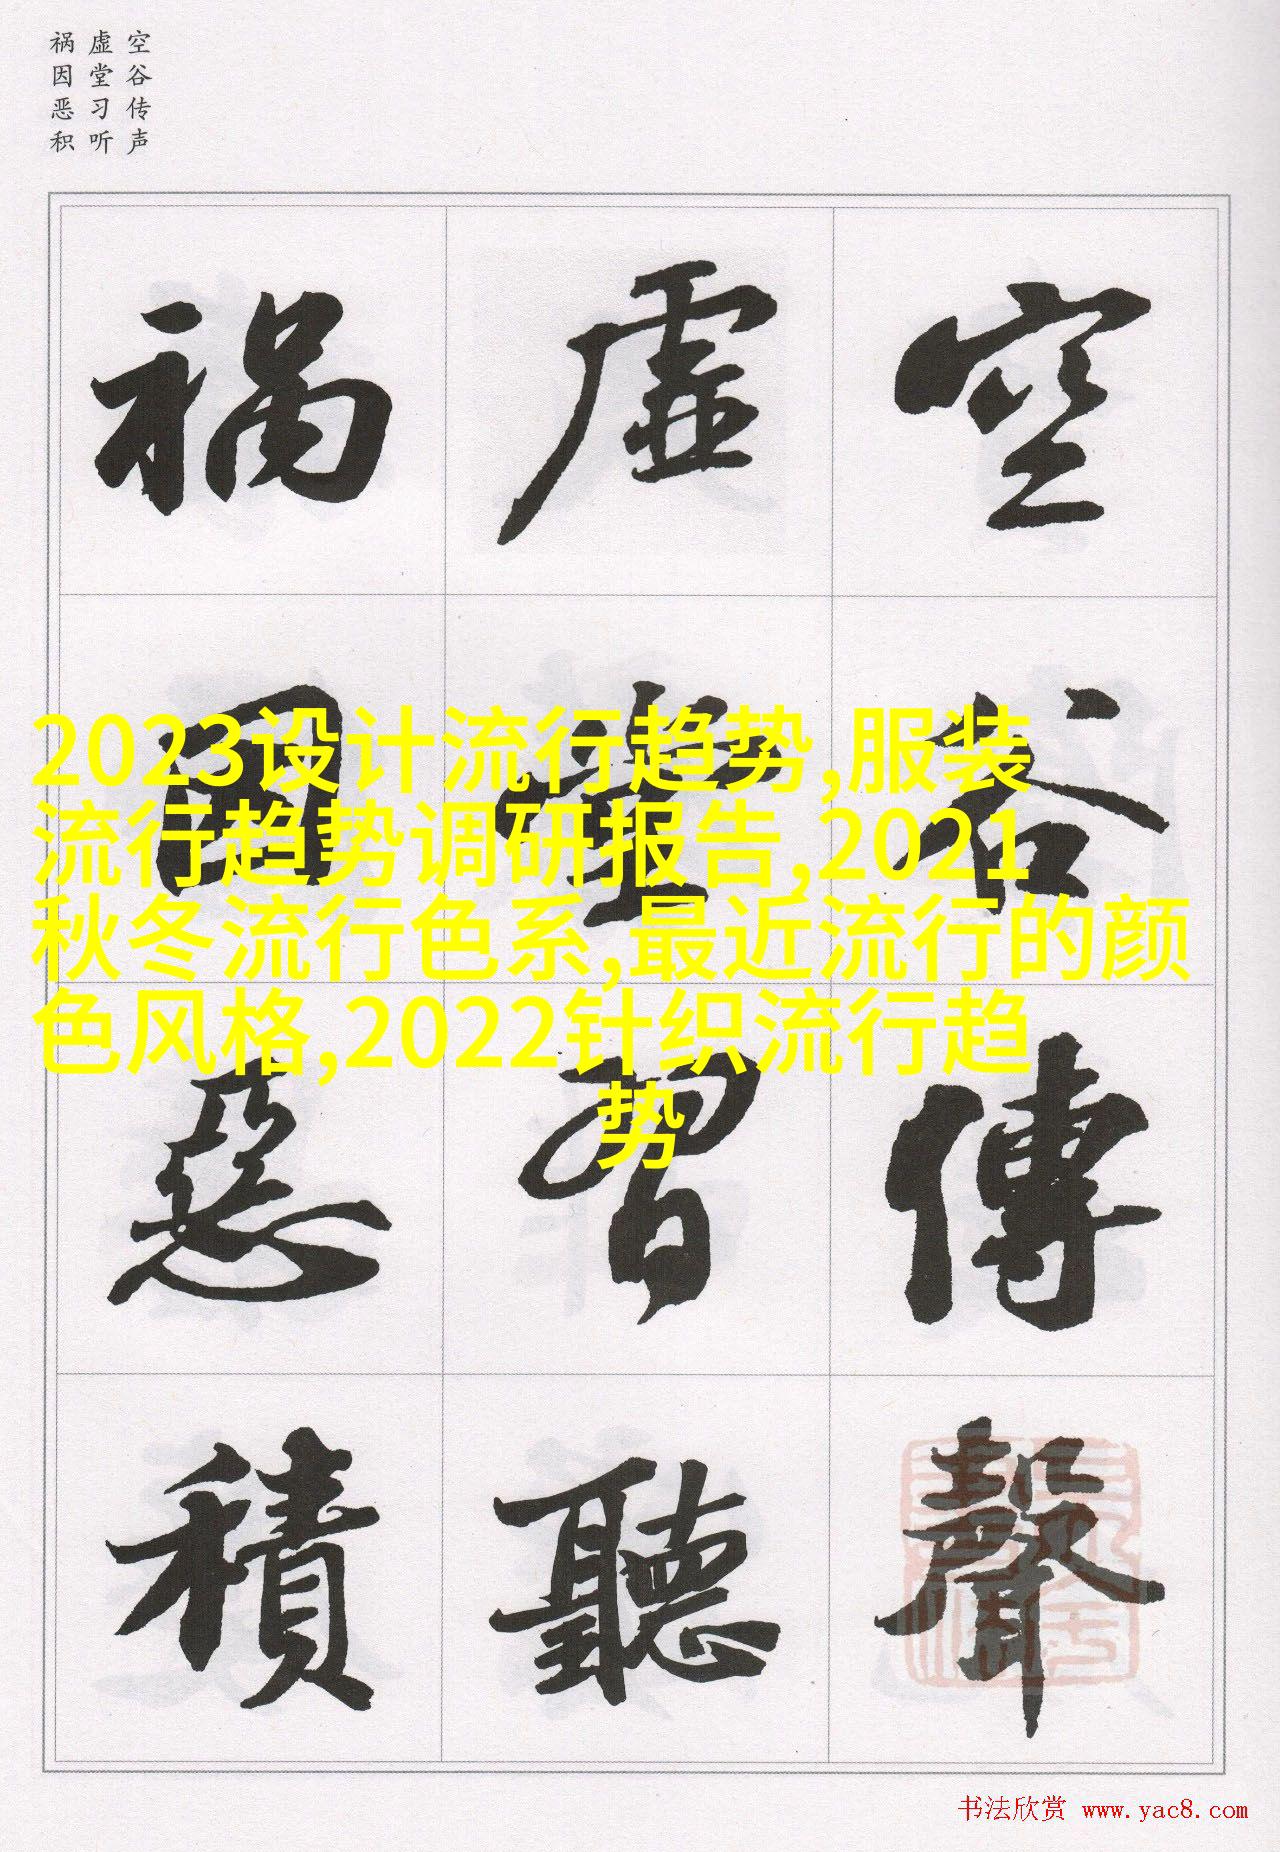 空谷传声
虚堂习听
祸因恶积
空谷傳聲
虚堂習聽
禍因惡積
2023设计流行趋势,服装
流行趋势调研报告,2021
秋冬流行色系,最近流行的颜
色风格,2022针织流行趋
势
书法欣赏 www.yac8.com